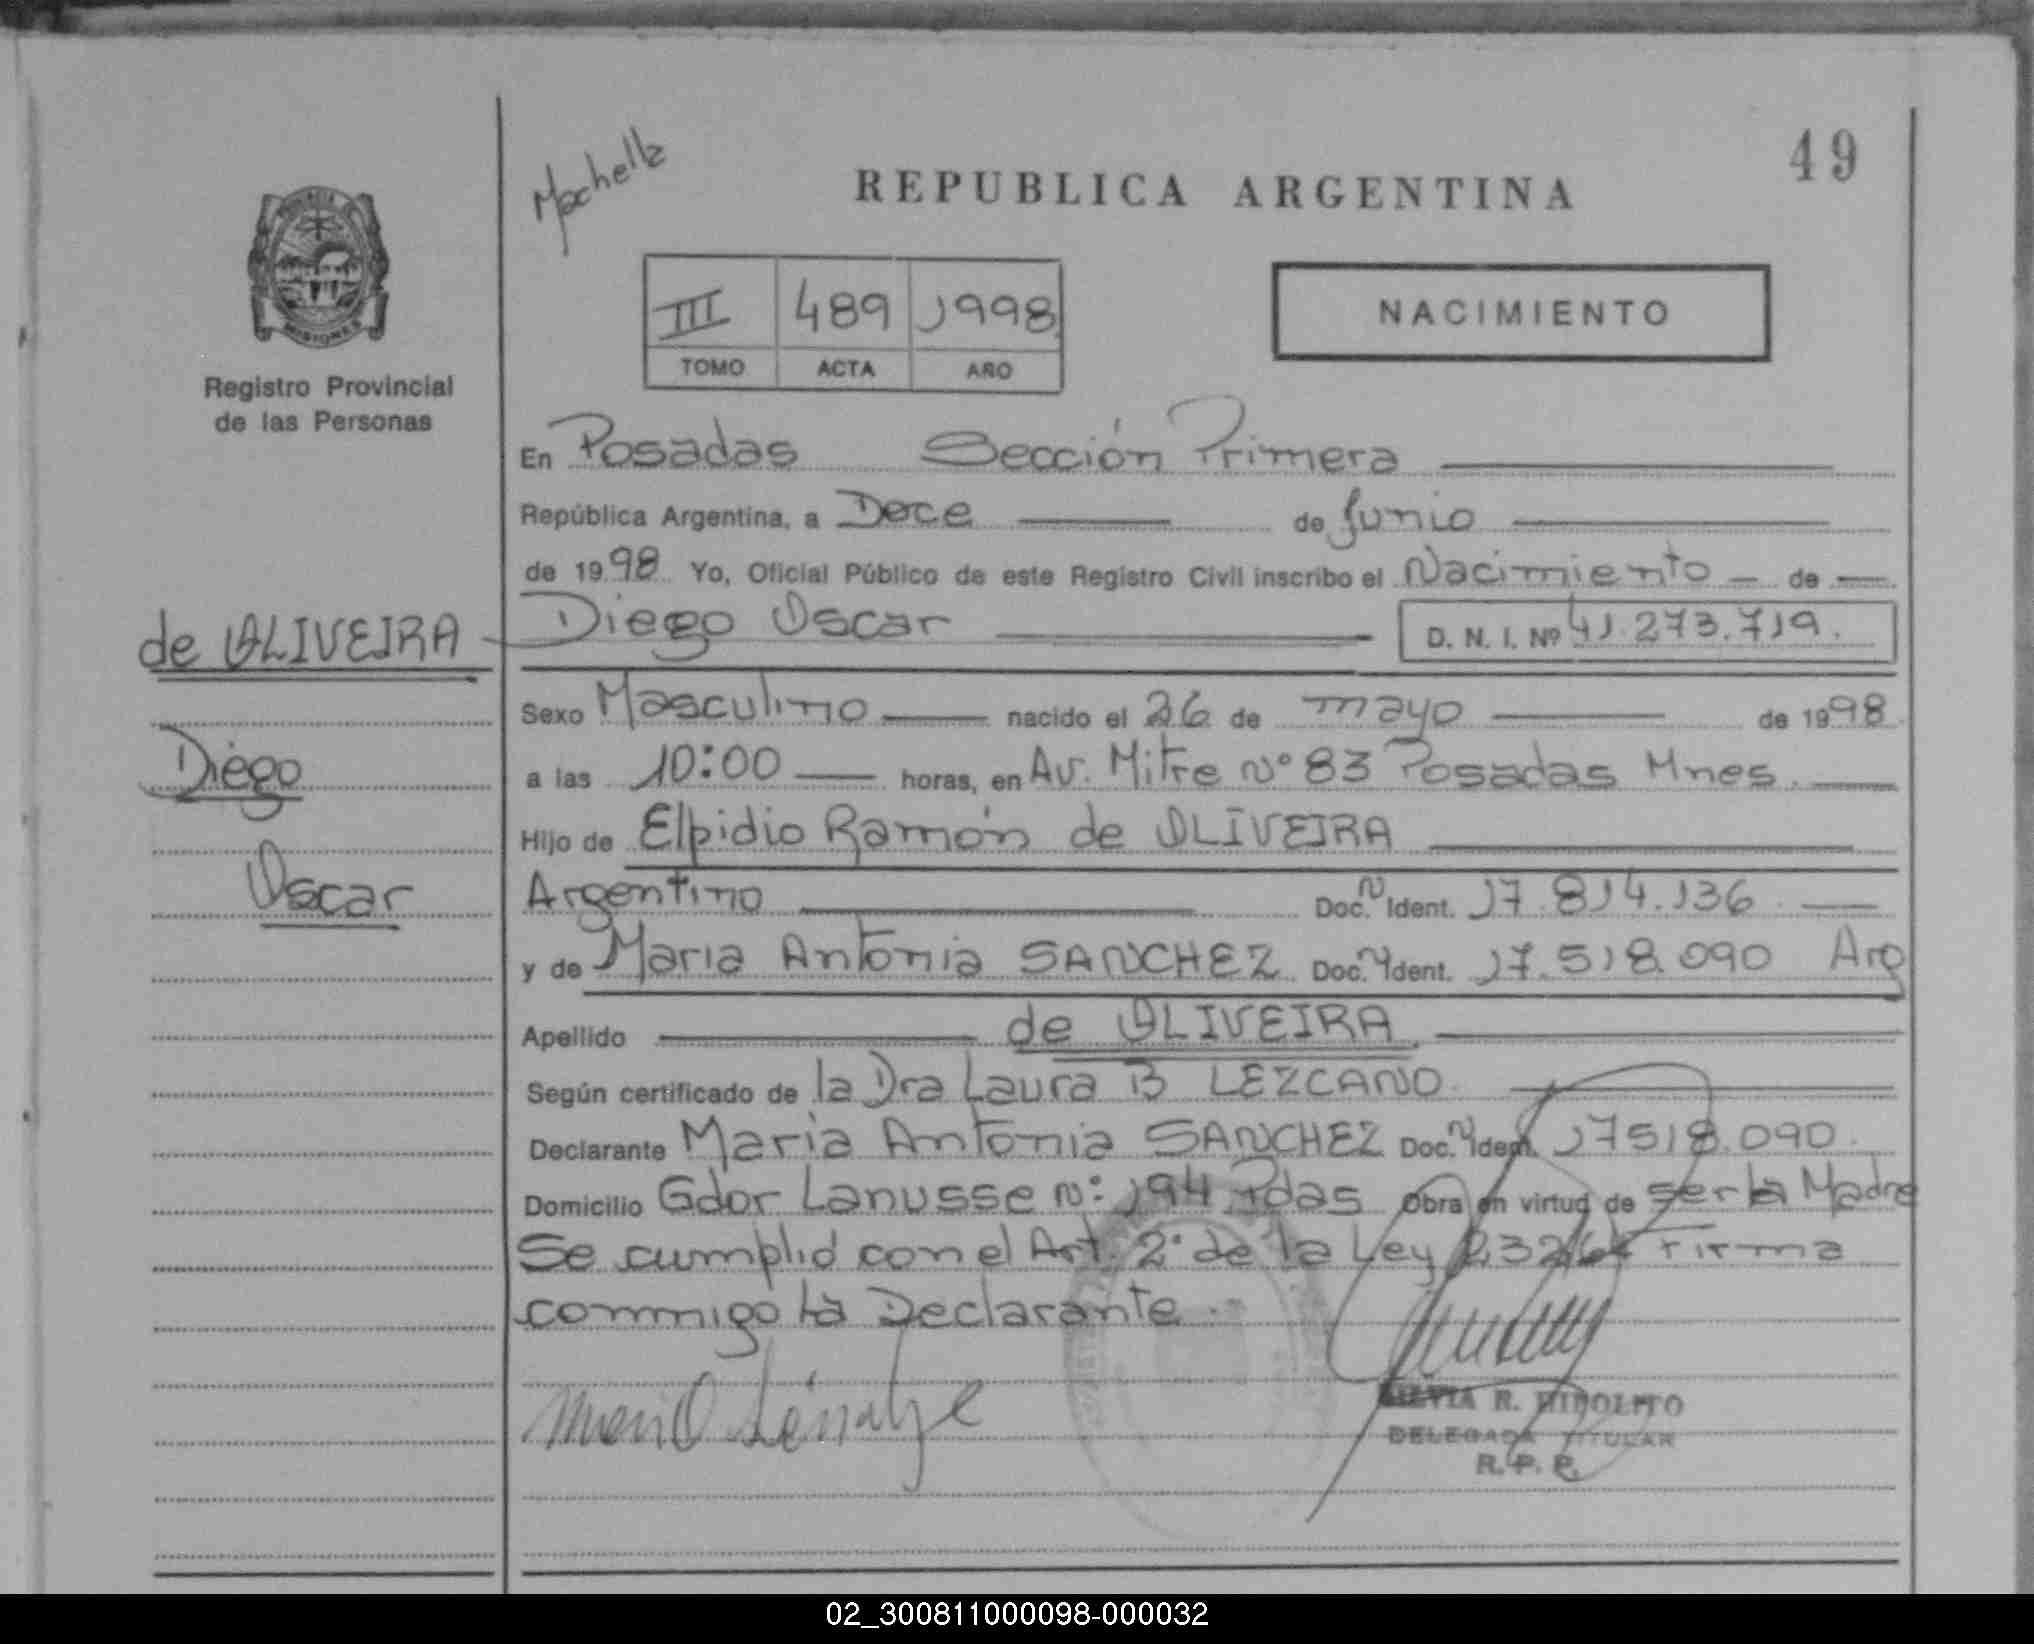 49
Mochella
REPUBLICA ARGENTINA
III 489 1998
TOMO ACTA AÑO
NACIMIENTO
MISIONES
Registro Provincial
de las Personas
En Posadas Sección Primera
República Argentina, a Doce de Junio
de 1998 Yo, Oficial Público de este Registro Civil inscribo el Nacimiento de
de OLIVEIRA
Diego Oscar D. N. I. Nº 41.273.719.
Sexo Masculino nacido el 26 de mayo de 1998
Diego
a las 10:00 horas, en Av. Mitre Nº 83 Posadas Mnes.
Hijo de Elpidio Ramón de OLIVEIRA
Oscar
Argentino Doc. N Ident. 17.814.136
y de Maria Antonia SANCHEZ Doc. N Ident. 17.518.090 Arg
Apellido de OLIVEIRA
Según certificado de la Dra Laura B LEZCANO
Declarante Maria Antonia SANCHEZ Doc. N Ident. 17518.090.
Domicilio Gdor Lanusse Nº: 194 Pdas Obra en virtud de ser la Madre
Se cumplió con el Art. 2º de la Ley 23264 Firma
conmigo la Declarante.
SILVIA R. HIPOLITO
DELEGADA TITULAR
R. P. P.
02_300811000098-000032